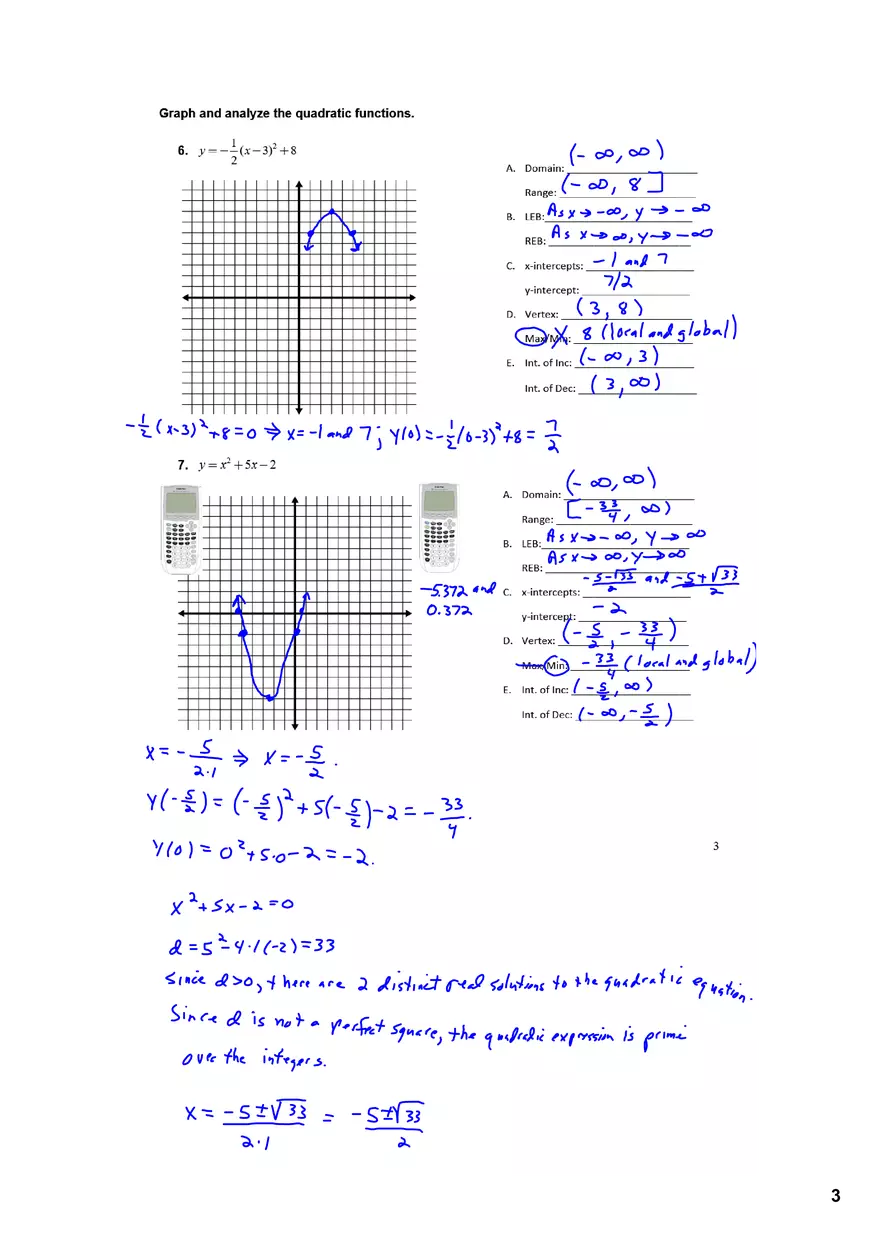 Graph and analyze the quadratic functions.
6. y = −1/2(x−3)² + 8
A. Domain: (−∞, ∞)
Range: (−∞, 8]
B. LEB: As x → −∞, y → −∞
REB: As x → ∞, y → −∞
C. x-intercepts: −1 and 7
y-intercept: 7/2
D. Vertex: (3, 8)
Max/Min: 8 (local and global)
E. Int. of Inc: (−∞, 3)
Int. of Dec: (3, ∞)
−1/2(x−3)² + 8 = 0 ⇒ x = −1 and 7; y(0) = −1/2(0−3)² + 8 = 7/2
7. y = x² + 5x − 2
A. Domain: (−∞, ∞)
Range: [−33/4, ∞)
B. LEB: As x → −∞, y → ∞
REB: As x → ∞, y → ∞
−5.372 and
0.372
C. x-intercepts: −5−√33/2 and −5+√33/2
y-intercept: −2
D. Vertex: (−5/2, −33/4)
Max/Min: −33/4 (local and global)
E. Int. of Inc: (−5/2, ∞)
Int. of Dec: (−∞, −5/2)
x = −5/2·1 ⇒ x = −5/2.
y(−5/2) = (−5/2)² + 5(−5/2) − 2 = −33/4.
y(0) = 0² + 5·0 − 2 = −2.
3
x² + 5x − 2 = 0
d = 5² − 4·1(−2) = 33
Since d > 0, there are 2 distinct real solutions to the quadratic equation.
Since d is not a perfect square, the quadratic expression is prime
over the integers.
x = −5±√33/2·1 = −5±√33/2
3